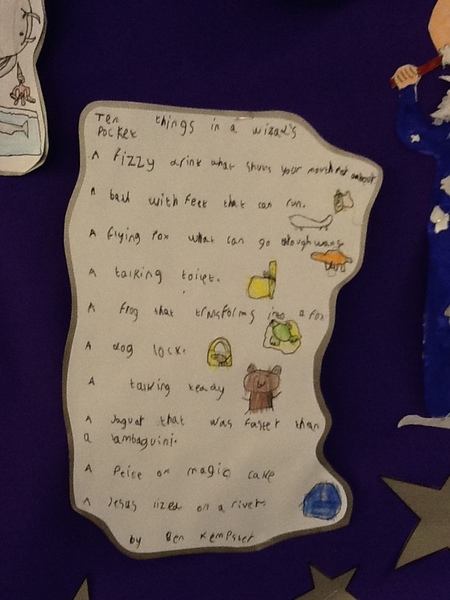 Ten things in a wizad's
Pocket
A fizzy drink what shuts your mouth
A bath with feet that can run.
A flying fox what can go
A talking toilet.
A frog that transforms into a fox
A dog lock.
A talking teady
A Jaguat that was faster than
a lambaguini.
A Peice of magic cake
A Jesus lized on a river
by Ben Kempster